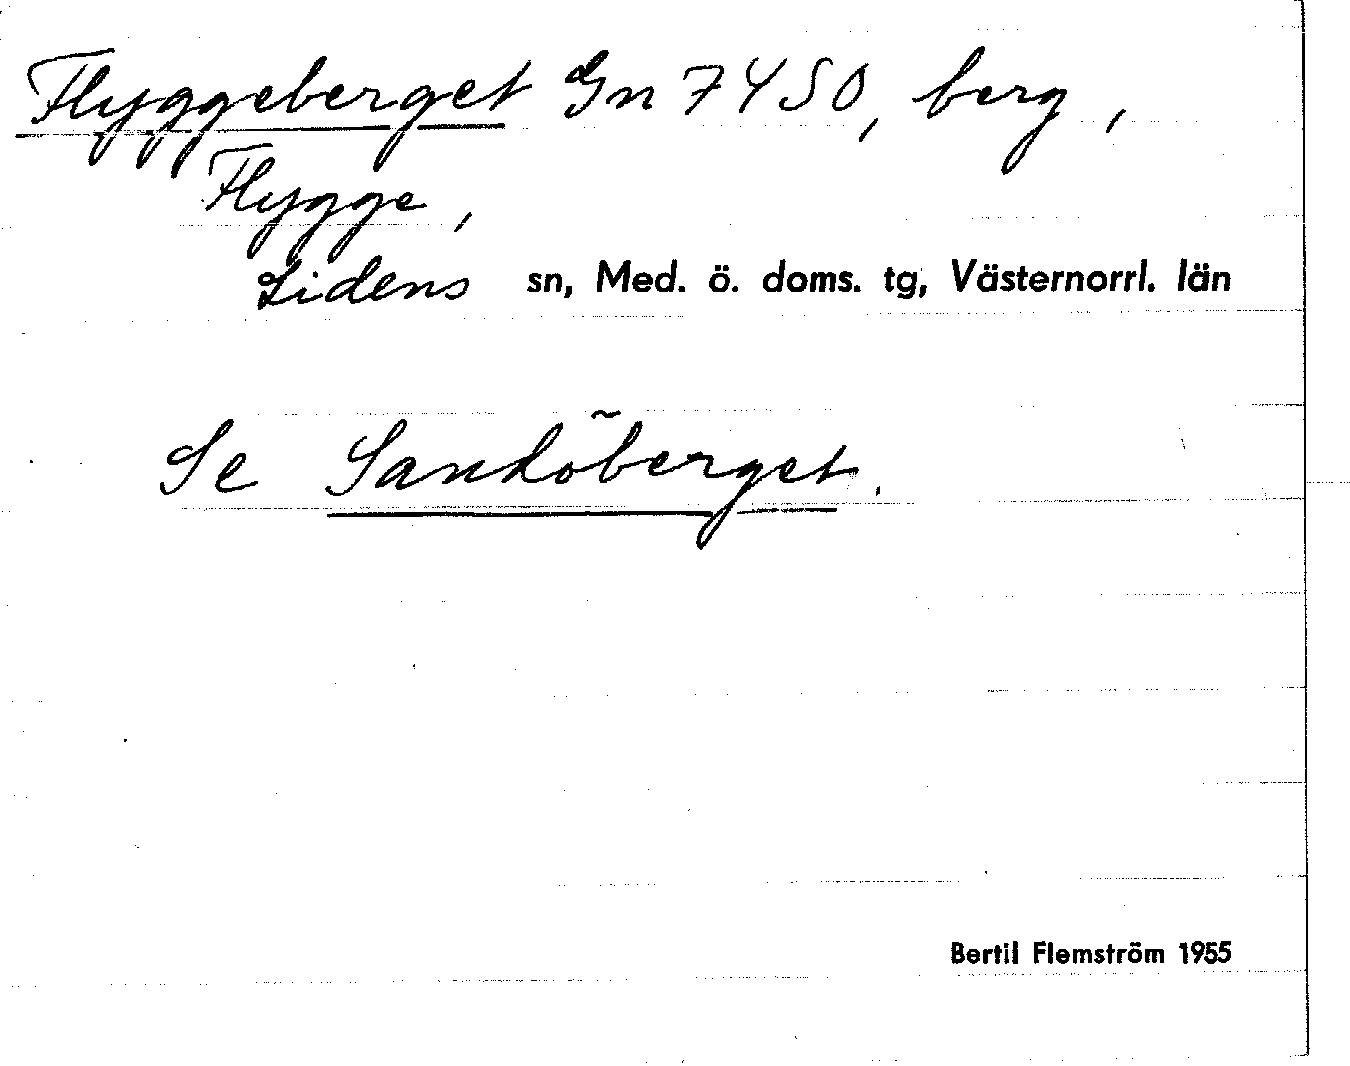 Flyggeberget Gn 7450, berg,
Flygge,
Lidens sn, Med. ö. doms. tg, Västernorrl. län
Se Sandöberget.
Bertil Flemström 1955